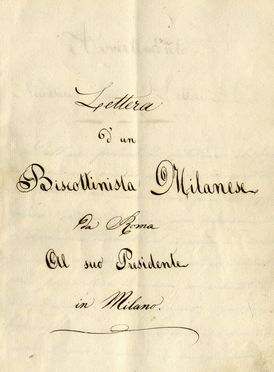 Lettera
d'un
Biscottinista Milanese
da Roma
Al suo Presidente
in Milano.